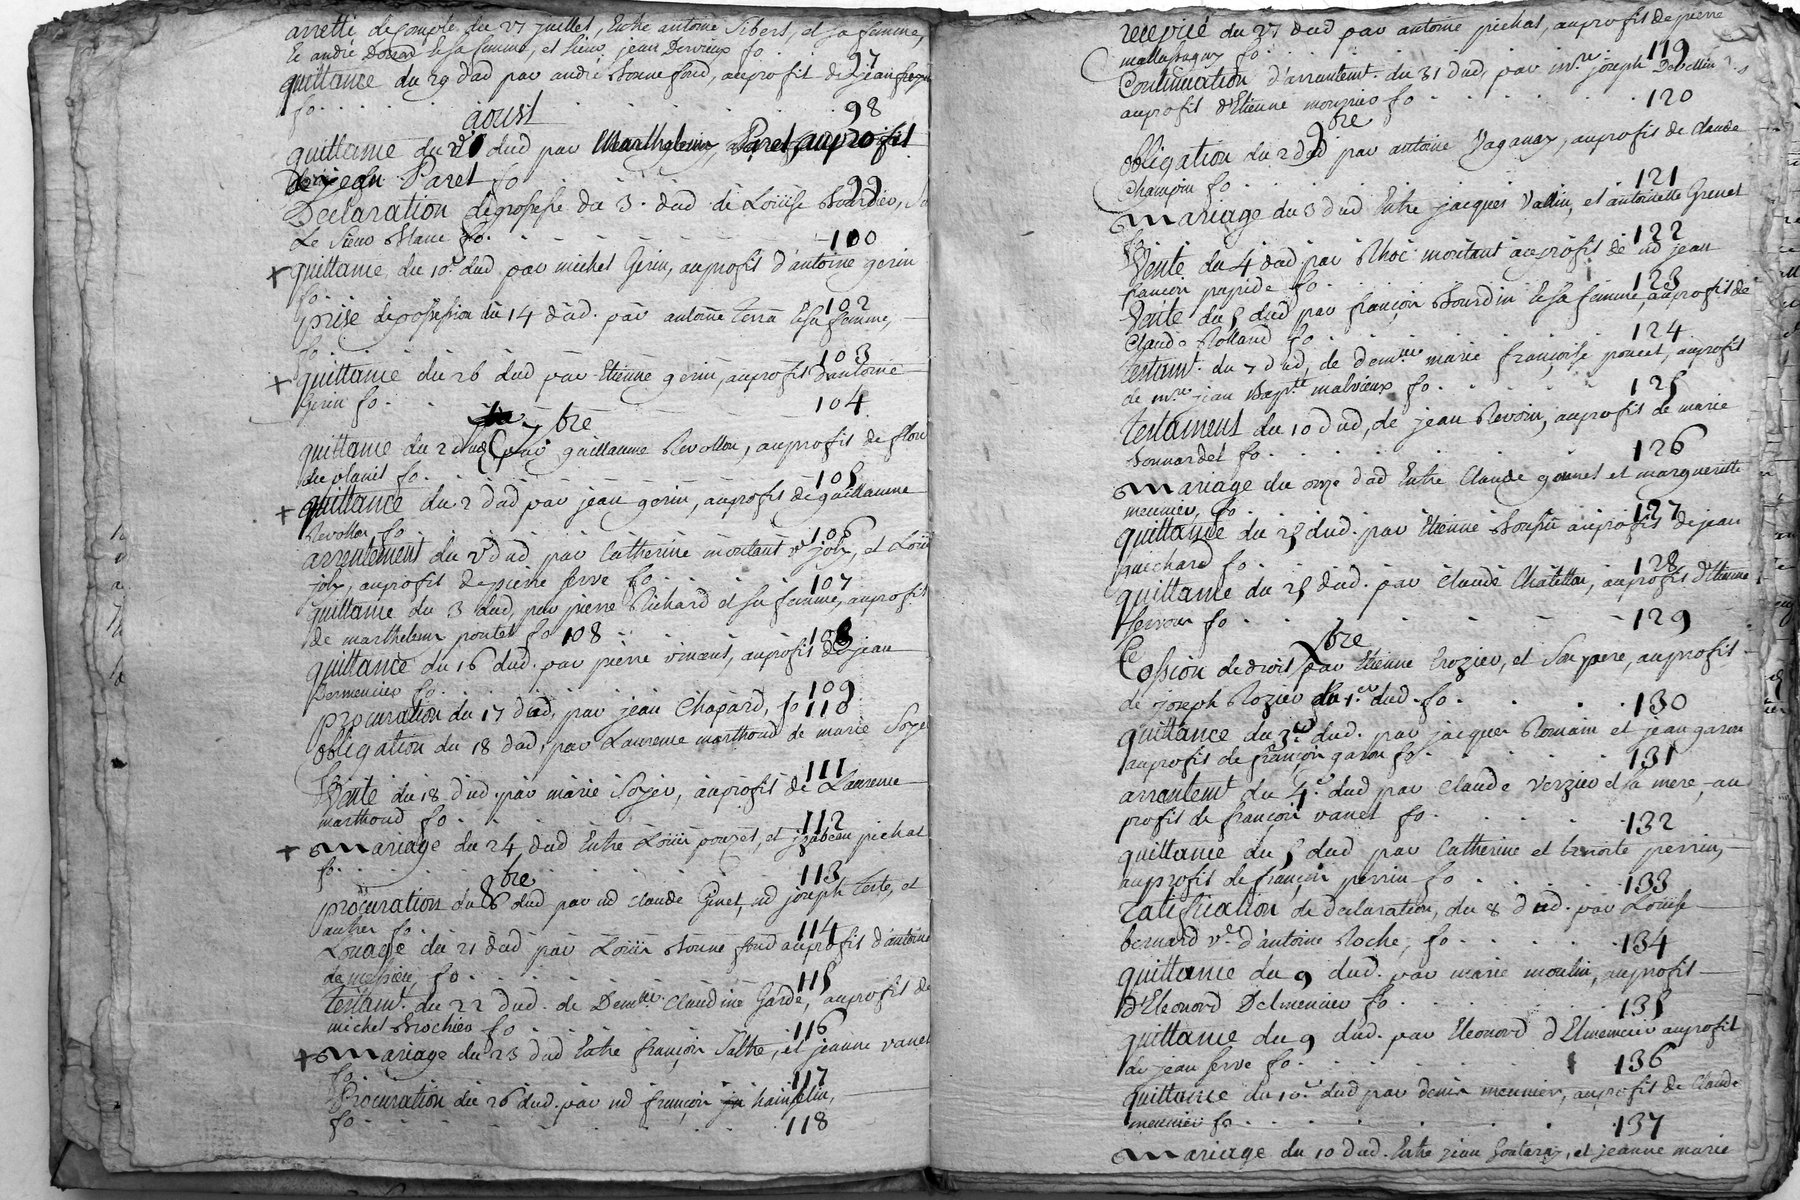 arretté de compte du 27 juillet, Entre antoine Sibert, et sa femme,
Et andré Et sa femme, et Sieur jean Dervieux fo 97
quittance du 29 dud par andré Bonnefond, au profit de jean
fo 98
aoust
quittance du dud par Marthelemy Paret, au profit
de jean Paret fo 99
Declaration de grossesse du 3. dud de Louise Bourdier,
Le Sieur Blanc fo. 100
+ quittance du 10.e dud par michel Gerin, au profit d'antoine gerin
fo. 102
prise de possession du 14 dud. par antoine terra Et sa femme,
fo. 103
+ quittance du 26 dud par Etienne gerin, au profit d'antoine
Gerin fo. 104
7bre
quittance du 2 dud par guillaume Revollon, au profit de
duplanit fo. 105
+ quittance du 2 dud par jean gerin, au profit de guillaume
Revollon fo 106
arrentement du 2 dud par Catherine montant v.e joly, et Louis
joly, au profit de pierre ferre fo 107
quittance du 3 dud, par pierre Richard et sa femme, au profit
de marthelemy pontet fo 108 108
quittance du 16 dud. par pierre vincent, au profit de jean
Dermencier fo. 109
procuration du 17 dud, par jean Chapard, fo 110
obligation du 18 dud, par Laurence marthoud de marie Soyer
fo. 111
Vente du 18 dud. par marie Soyer, au profit de Laurence
marthoud fo. 112
+ Mariage du 24 dud Entre Louis pouzet, et jzabeau pichat
fo. 113
8bre
procuration du 6 dud par md claude Ginet, md joseph terte, et
autres fo. 114
Louage du 21 dud par Louis Bonnefond au profit d'antoine
fo. 115
testamt. du 22 dud. de Demlle. Claudine Garde, au profit de
michel Brochier fo 116
+ Mariage du 23 dud Entre françois Faltre, et jeanne vanel
fo. 117
Procuration du 26 dud. par md françois hainselin,
fo. 118
recepicé du 27 dud par antoine pichat, au profit de pierre
fo. 119
Continuation d'arrentemt. du 31 dud, par mre. joseph
au profit d'Etienne mounier fo. 120
9bre
obligation du 2 dud par antoine Vaganay, au profit de claude
Champin fo. 121
Mariage du 3 dud Entre jacques Vallin, et antoinette Grenet
fo 122
Vente du 4 dud par Rhoc montant au profit de md jean
françois papide fo. 123
Vente du 5 dud par françois Bourdin Et sa femme, au profit de
Claude Rolland fo. 124
testamt. du 7 dud, de demlle marie françoise poncet, au profit
de mre. jean Bapte. malvieux fo. 125
testament du 10 dud, de jean Revoin, au profit de marie
Bonnardet fo. 126
Mariage du onze dud Entre Claude gonnet et margueritte
meunier, fo. 127
quittance du 25 dud. par Etienne Bonfin au profit de jean
guichard fo. 128
quittance du 25 dud. par claude Chatillon, au profit d'Etienne
ferroux fo. 129
Xbre
Cession de droit par Etienne Crozier, et Son pere, au profit
de joseph Rozier du 1.er dud. fo. 130
quittance du 3.e dud. par jacques Romain et jean garon
au profit de françois garon fo. 131
arrentemt du 4.e dud par Claude Verzier et sa mere, au
profit de françois vanel fo. 132
quittance du 5 dud par Catherine et benoite perrin,
au profit de françois perrin fo 133
ratification de declaration, du 8 dud. par Louise
bernard v.e d'antoine Roche, fo. 134
quittance du 9 dud. par marie moulin, au profit
d'Eleonord Delmencier fo. 135
quittance du 9 dud. par Eleonord d'Elmencier au profit
de jean ferre fo. 136
quittance du 10.e dud par denis meunier, au profit de Claude
meunier fo. 137
Mariage du 10 dud. Entre jean et jeanne marie